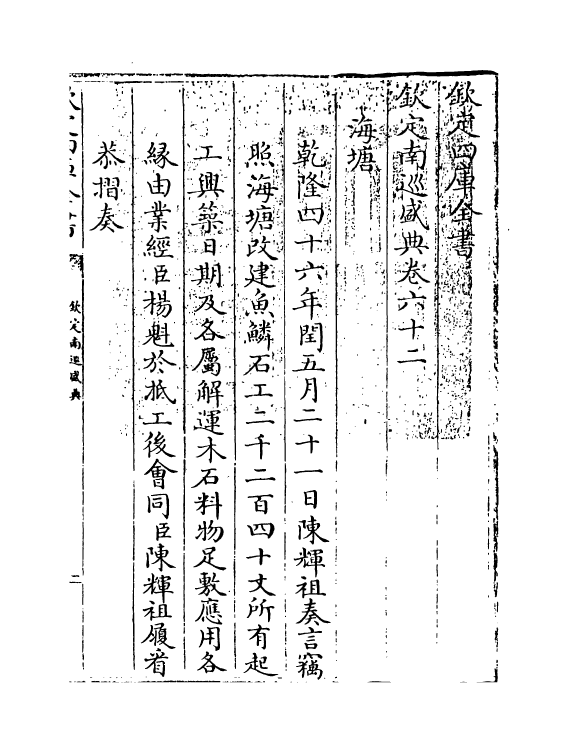 欽定四庫全書
欽定南巡盛典卷六十二
海塘
乾隆四十六年閏五月二十一日陳輝祖奏言竊
照海塘改建魚鱗石工二千二百四十丈所有起
工興築日期及各屬解運木石料物足敷應用各
緣由業經臣楊魁於抵工後會同臣陳輝祖履看
恭摺奏
欽定四庫全書
欽定南巡盛典
二